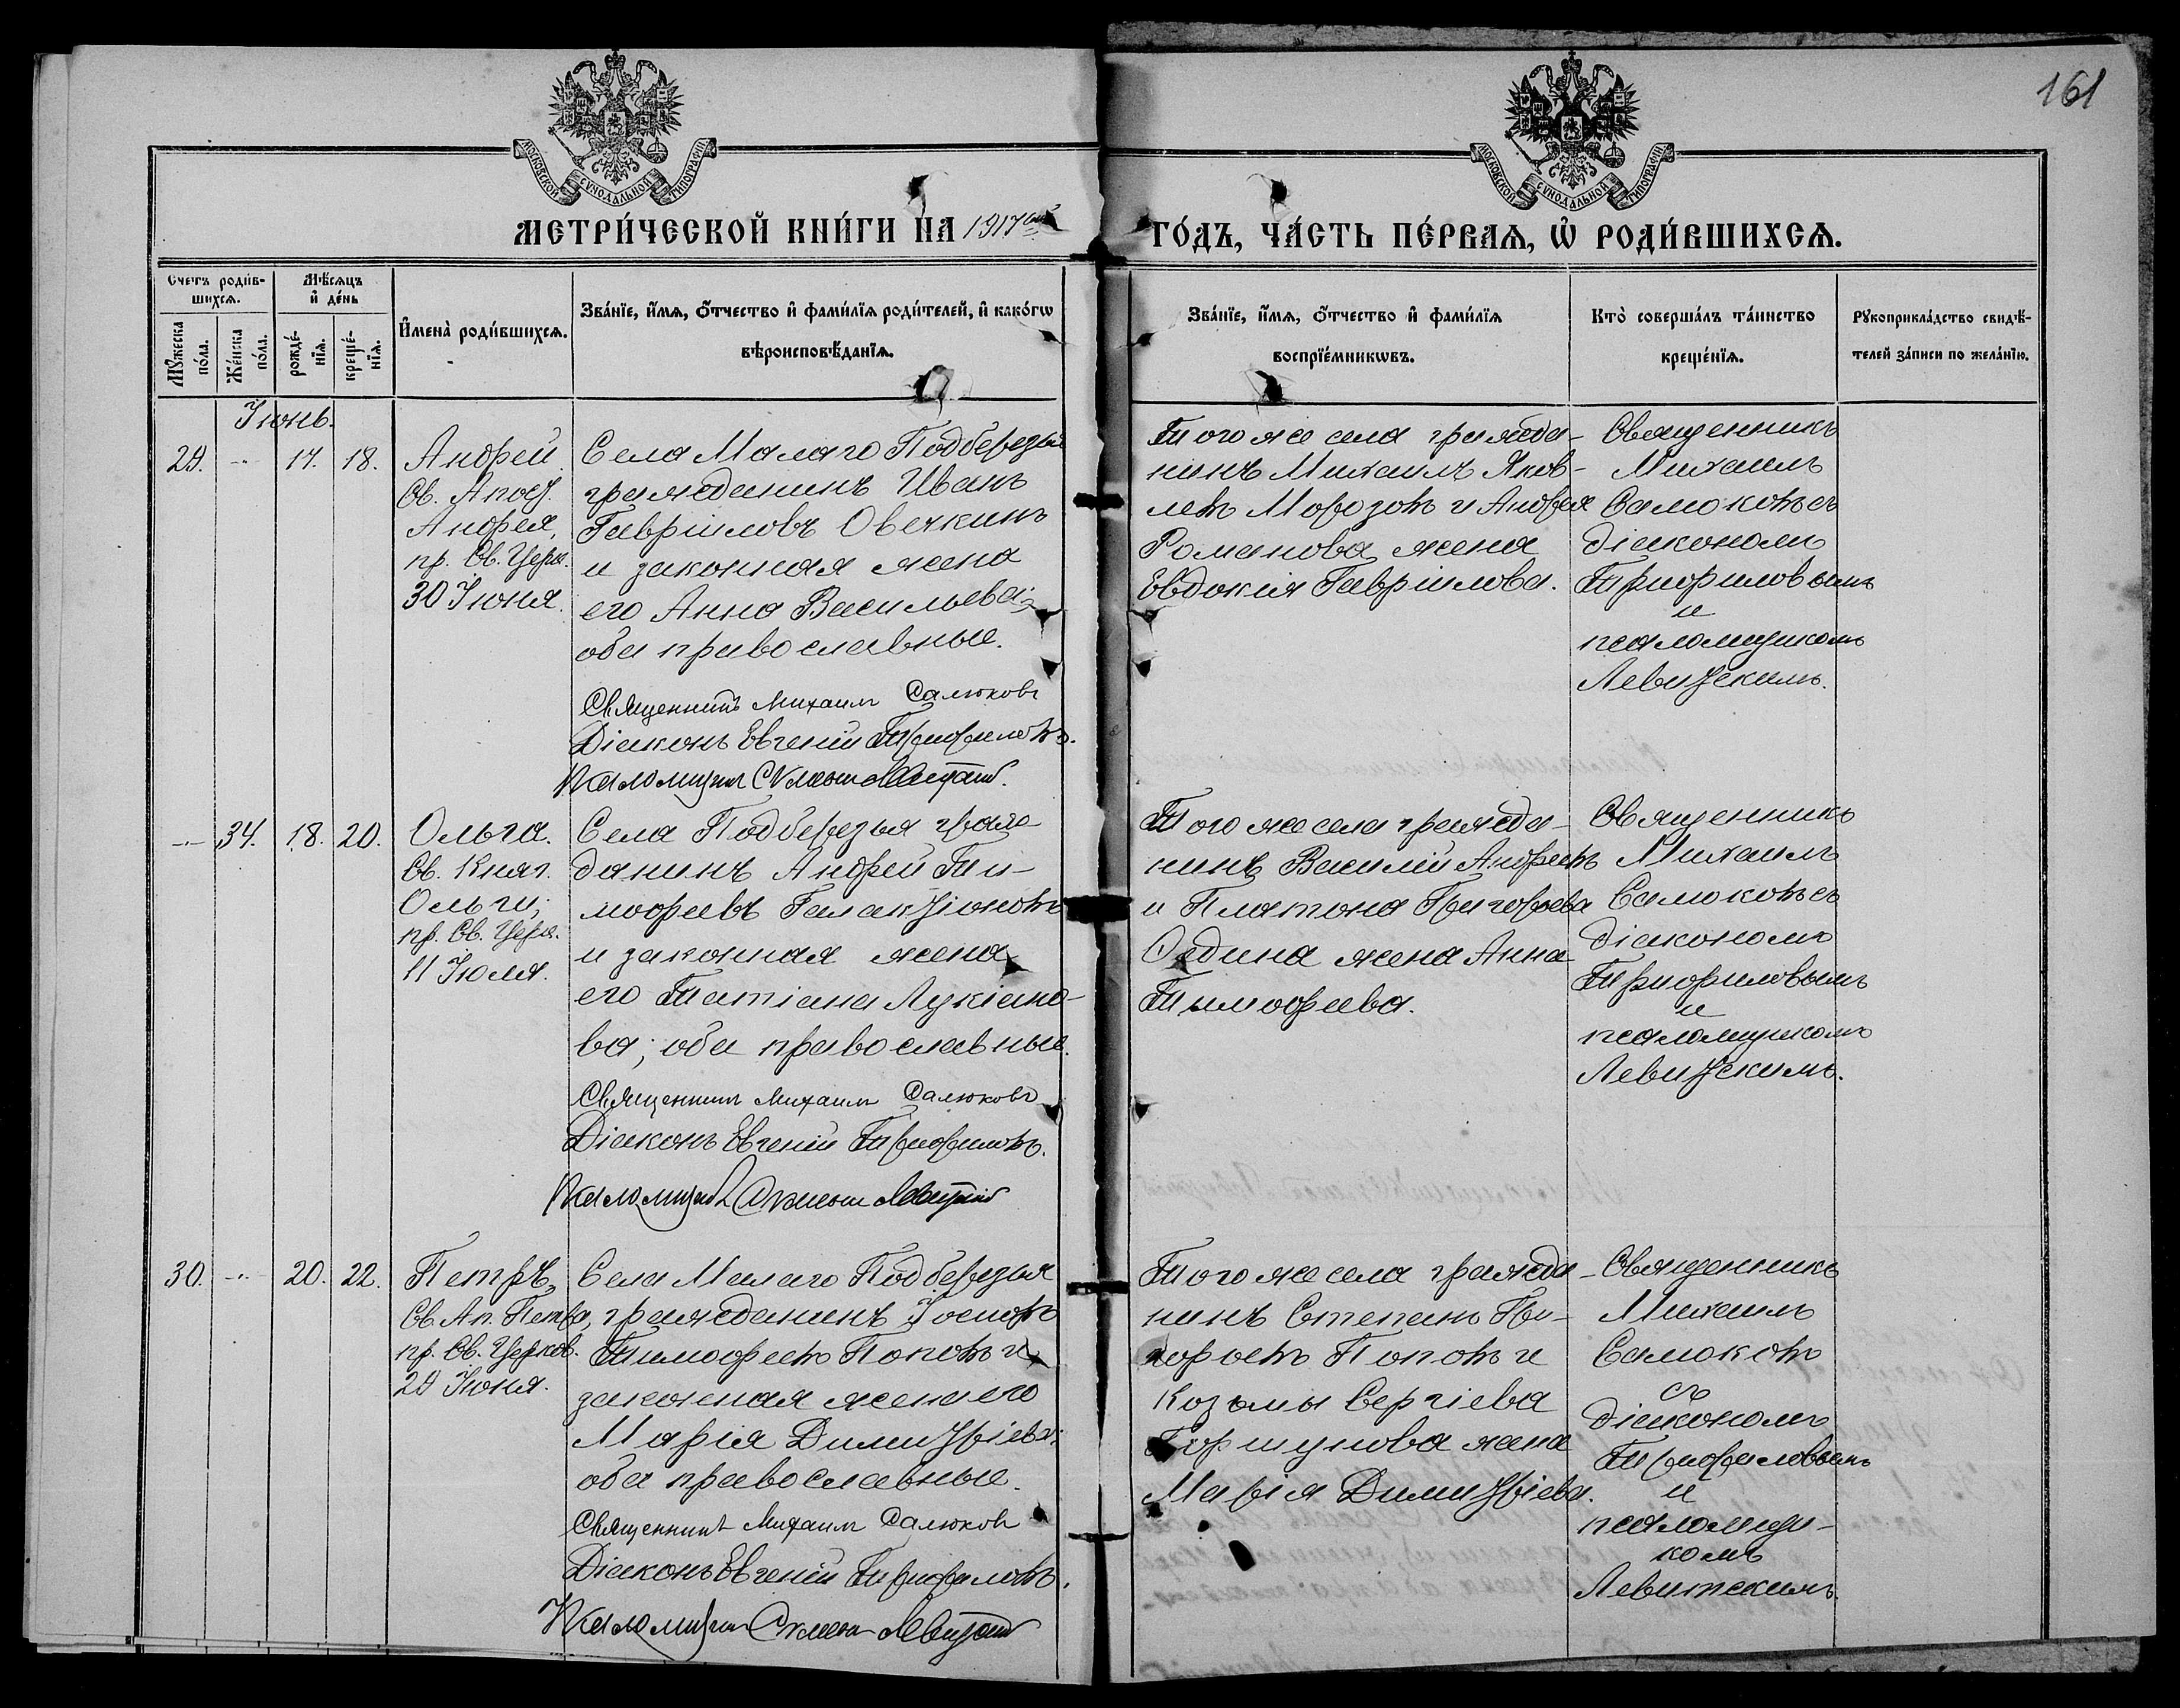 161
МОСКОВСКОЙ СѴНОДАЛЬНОЙ ТИПОГРАФІИ
МОСКОВСКОЙ СѴНОДАЛЬНОЙ ТИПОГРАФІИ
МЕТРИ́ЧЕСКОЙ КНИ́ГИ НА 1917ый ГО́ДЪ, ЧА́СТЬ ПЕ́РВАѦ, Ѡ РОДИ́ВШИХСѦ.
Счетъ роди́в-
шихсѧ.
Мѣ́сѧцъ
и де́нь
Мꙋ́жеска по́ла.
Же́нска по́ла.
рожде́-
нїѧ.
креще́-
нїѧ.
И҆мена̀ роди́вшихсѧ.
Зва́нїе, и҆́мѧ, ѻ҆́тчество и҆ фами́лїѧ роди́телей, и҆ како́гѡ
вѣроисповѣ́данїѧ.
Зва́нїе, и҆́мѧ, ѻ҆́тчество и҆ фами́лїѧ
воспрїе́мникѡвъ.
Кто̀ соверша́лъ та́инство
креще́нїѧ.
Рꙋкоприкла́дство свидѣ́-
телей за́писи по жела́нїю.
Іюнь.
29. -..- 17. 18.
Андрей
Св. Апост.
Андрея,
пр. Св. Церк.
30 Іюня.
Села Малаго Подберезья
гражданинъ Иванъ
Гавріиловъ Овечкинъ
и законная жена
его Анна Васильева;
оба православные.
Священникъ Михаилъ Самоковъ
Діаконъ Евгеній Трифиловъ.
Псаломщикъ Левитскій.
Того же села гражда-
нинъ Михаилъ Яков-
левъ Морозовъ и Андрея
Романова жена
Евдокія Гавріилова.
Священникъ
Михаилъ
Самоковъ съ
діакономъ
Трифиловымъ
и
псаломщикомъ
Левитскимъ.
-..- 34. 18. 20.
Ольга.
Св. Княг.
Ольги;
пр. Св. Церк.
11 Іюля.
Села Подберезья граж-
данинъ Андрей Ти-
мофеевъ Галактіоновъ
и законная жена
его Татіана Лукіано-
ва; оба православные.
Священникъ Михаилъ Самоковъ
Діаконъ Евгеній Трифиловъ.
Псаломщикъ Левитскій
Того же села гражда-
нинъ Василій Андреевъ
и Платона Григорьева
Седина жена Анна
Тимофеева.
Священникъ
Михаилъ
Самоковъ съ
діакономъ
Трифиловымъ
и
псаломщикомъ
Левитскимъ.
30. -..- 20. 22.
Петръ,
Св. Ап. Петра,
пр. Св. Церков.
29 Іюня.
Села Малаго Подберезья
гражданинъ Іосифъ
Тимофеевъ Поповъ и
законная жена его
Марія Димитріева;
оба православные.
Священникъ Михаилъ Самоковъ
Діаконъ Евгеній Трифиловъ.
Псаломщикъ Левитскій
Того же села гражда-
нинъ Степанъ Гри-
горьевъ Поповъ и
Козьмы Сергіева
Горшунова жена
Марія Димитріева.
Священникъ
Михаилъ
Самоковъ
съ
діакономъ
Трифиловымъ
и
псаломщи-
комъ
Левитскимъ.